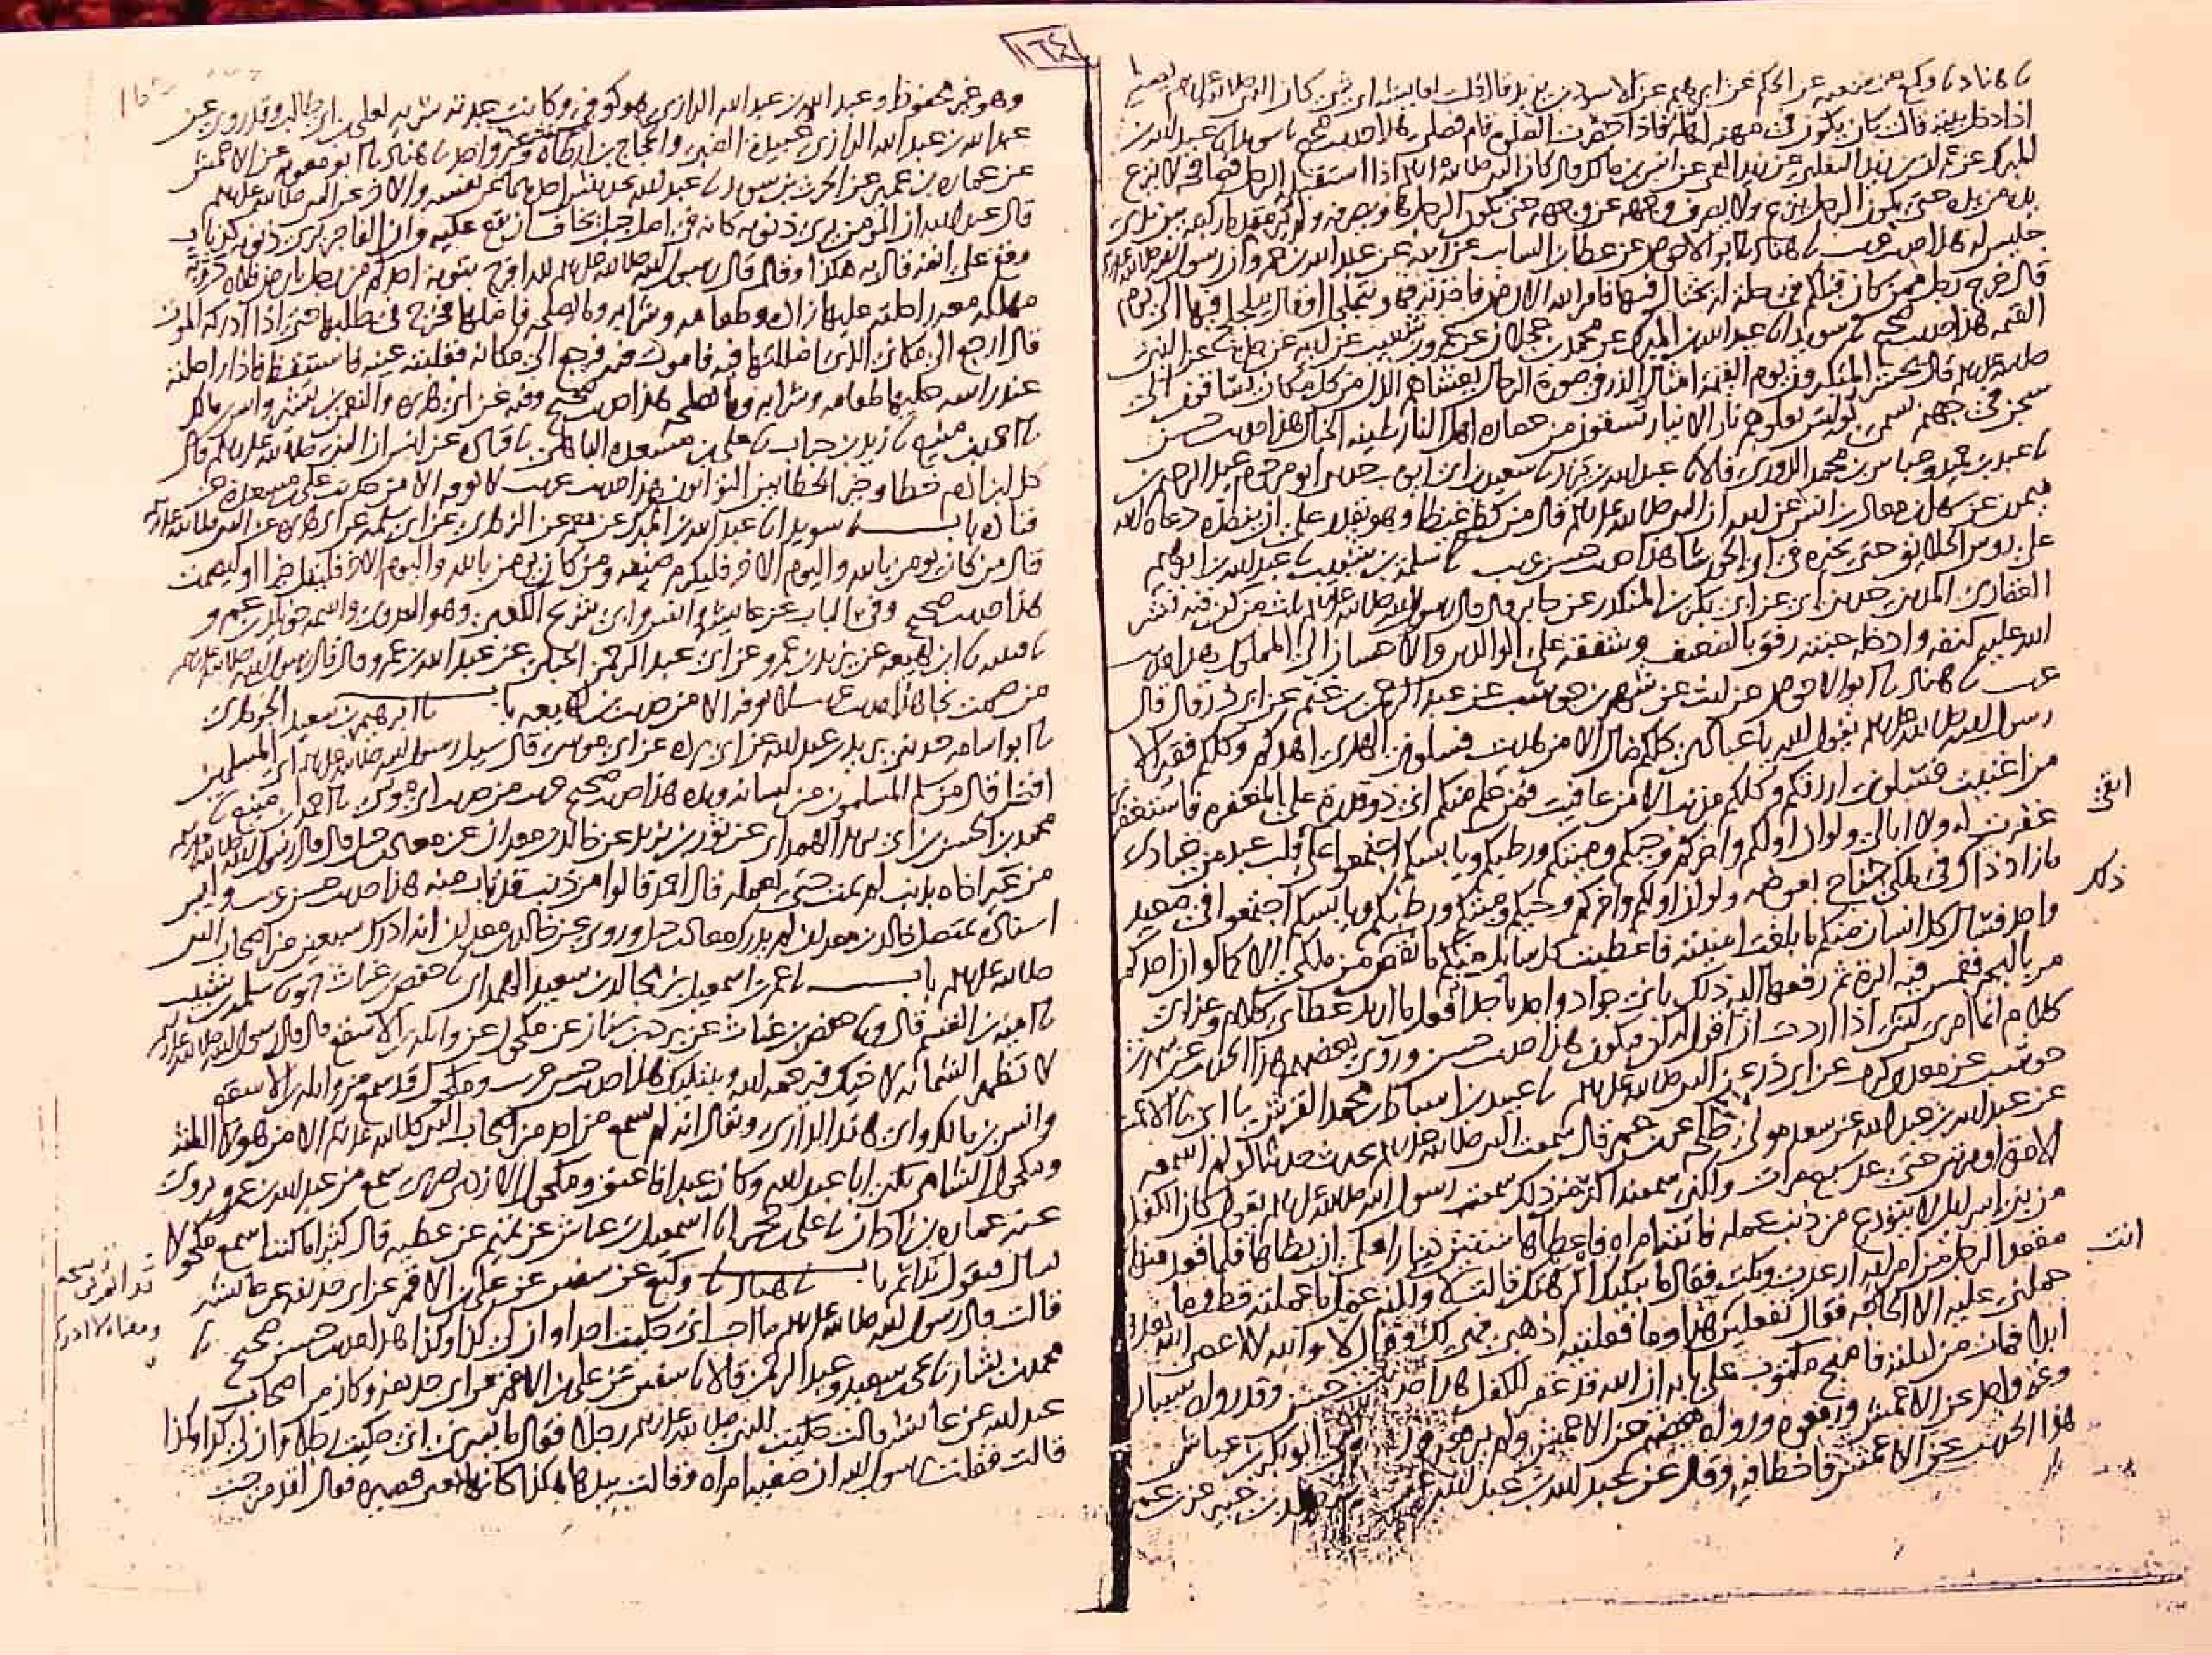 ١٦٤
نا هناد نا وكيع عن شعبه عن الحكم عن ابرهيم عن الاسود بن يزيد قال قلت لعايشه اي شي كان النبي صلى الله عليه وسلم يصنع
اذا دخل بيته قالت كان يكون في مهنه اهله فاذا حضرت الصلوه قام فصلى هذا حديث صحيح نا سويد انا عبد الله بن
المبارك عن عمران بن زيد التغلبي عن زيد العمي عن انس بن مالك قال كان النبي صلى الله عليه وسلم اذا استقبله الرجل فصافحه لا ينزع
يده من يده حتى يكون الرجل ينزع ولا يصرف وجهه عن وجهه حتى يكون الرجل هو يصرفه ولم ير مقدما ركبتيه بين يدي
جليس له هذا حديث غريب نا هناد نا ابو الاحوص عن عطا بن السايب عن ابيه عن عبد الله بن عمرو ان رسول الله صلى الله عليه وسلم
قال خرج رجل ممن كان قبلكم في حله له يختال فيها فامر الله الارض فاخذته فهو يتجلجل او قال يتلجلج فيها الى يوم
القيمه هذا حديث صحيح نا سويد انا عبد الله بن المبارك عن محمد بن عجلان عن عمرو بن شعيب عن ابيه عن جده عن النبي
صلى الله عليه وسلم قال يحشر المتكبرون يوم القيمه امثال الذر في صورة الرجال يغشاهم الذل من كل مكان يساقون الى
سجن في جهنم يسمى بولس تعلوهم نار الانيار يسقون من عصاره اهل النار طينه الخبال هذا حديث حسن
نا عبد بن حميد وعباس بن محمد الدوري قالا نا عبد الله بن يزيد نا سعيد بن ابي ايوب حدثني ابو مرحوم عبد الرحيم بن
ميمون عن سهل بن معاذ بن انس عن ابيه ان النبي صلى الله عليه وسلم قال من كظم غيظا وهو يقدر على ان ينفذه دعاه الله
على روس الخلايق حتى يخيره في اي الحور شا هذا حديث حسن غريب نا سلمه بن شبيب نا عبد الله بن ابرهيم
الغفاري المدني حدثني ابي عن ابي بكر بن المنكدر عن جابر قال قال رسول الله صلى الله عليه وسلم ثلاث من كن فيه نشر
الله عليه كنفه وادخله جنته رفق بالضعيف وشفقه على الوالدين والاحسان الى المملوك هذا حديث
غريب نا هناد نا ابو الاحوص عن ليث عن شهر بن حوشب عن عبد الرحمن بن غنم عن ابي ذر قال قال
رسول الله صلى الله عليه وسلم يقول الله يا عبادي كلكم ضال الا من هديت فسلوني الهدى اهدكم وكلكم فقير الا
من اغنيت فسلوني ارزقكم وكلكم مذنب الا من عافيت فمن علم منكم اني ذو قدرة على المغفره فاستغفرني
غفرت له ولا ابالي ولو ان اولكم واخركم وحيكم وميتكم ورطبكم ويابسكم اجتمعوا على اتقى قلب عبد من عبادي
ما زاد ذلك في ملكي جناح بعوضه ولو ان اولكم واخركم وحيكم وميتكم ورطبكم ويابسكم اجتمعوا في صعيد
واحد فسال كل انسان منكم ما بلغت امنيته فاعطيت كل سايل منكم ما نقص من ملكي الا كما لو ان احدكم
مر بالبحر فغمس فيه ابرة ثم رفعها اليه ذلك باني جواد واجد ماجد افعل ما اريد عطاي كلام وعذابي
كلام انما امري لشي اذا اردت ان اقول له كن فيكون هذا حديث حسن وروى بعضهم هذا الحديث عن شهر بن
حوشب عن معدي كرب عن ابي ذر عن النبي صلى الله عليه وسلم نا عبيد بن اسباط بن محمد القرشي نا ابي نا الاعمش
عن عبد الله بن عبد الله عن سعد مولى طلحه عن ابن عمر قال سمعت النبي صلى الله عليه وسلم يحدث حديثا لو لم اسمعه
الا مرة او مرتين حتى عد سبع مرات ولكني سمعته اكثر من ذلك سمعت رسول الله صلى الله عليه وسلم يقول كان الكفل
من بني اسرايل لا يتورع من ذنب عمله فاتته امراه فاعطاها ستين دينارا على ان يطاها فلما قعد منها
مقعد الرجل من امراته ارعدت وبكت فقال ما يبكيك اكرهتك قالت لا ولكنه عمل ما عملته قط وما
حملني عليه الا الحاجه فقال تفعلين انت هذا وما فعلته اذهبي فهي لك وقال لا والله لا اعصي الله بعدها
ابدا فمات من ليلته فاصبح مكتوب على بابه ان الله قد غفر للكفل هذا حديث حسن وقد رواه شيبان
وغير واحد عن الاعمش ورفعوه ورواه بعضهم عن الاعمش ولم يرفعه وروى ابو بكر بن عياش
هذا الحديث عن الاعمش فاخطا فيه وقال عن عبد الله بن عبد الله عن سعيد بن جبير عن ابن عمر
اتقى
ذلك
انت
وهو غير محفوظ وعبد الله بن عبد الله الرازي هو كوفي وكانت جدته سريه لعلي بن ابي طالب وقد روى عن
عبد الله بن عبد الله الرازي عبيدة الضبي والحجاج بن ارطاه وغير واحد نا هناد نا ابو معويه عن الاعمش
عن عماره بن عمير عن الحرث بن سويد نا عبد الله بحديثين احدهما عن نفسه والاخر عن النبي صلى الله عليه وسلم
قال عبد الله ان المومن يرى ذنوبه كانه في اصل جبل يخاف ان يقع عليه وان الفاجر يرى ذنوبه كذباب
وقع على انفه قال به هكذا وقال قال رسول الله صلى الله عليه وسلم لله افرح بتوبه احدكم من رجل بارض فلاه دويه
مهلكه معه راحلته عليها زاده وطعامه وشرابه وما يصلحه فاضلها فخرج في طلبها حتى اذا ادركه الموت
قال ارجع الى مكاني الذي اضللتها فيه فاموت فيه فرجع الى مكانه فغلبته عينه فاستيقظ فاذا راحلته
عند راسه عليها طعامه وشرابه وما يصلحه هذا حديث صحيح وفيه عن ابي هريره والنعمن بن بشير وانس بن مالك
نا احمد بن منيع نا زيد بن حباب نا علي بن مسعده الباهلي نا قتاده عن انس ان النبي صلى الله عليه وسلم قال
كل ابن ادم خطا وخير الخطايين التوابون هذا حديث غريب لا نعرفه الا من حديث علي بن مسعده عن
قتاده باب نا سويد انا عبد الله بن المبارك عن معمر عن الزهري عن ابي سلمه عن ابي هريره عن النبي صلى الله عليه وسلم
قال من كان يومن بالله واليوم الاخر فليكرم ضيفه ومن كان يومن بالله واليوم الاخر فليقل خيرا او ليصمت
هذا حديث صحيح وفي الباب عن عايشه وانس وابي شريح الكعبي وهو العدوي واسمه خويلد بن عمرو
نا قتيبه نا ابن لهيعه عن يزيد بن عمرو عن ابي عبد الرحمن الحبلي عن عبد الله بن عمرو قال قال رسول الله صلى الله عليه وسلم
من صمت نجا هذا حديث غريب لا نعرفه الا من حديث ابن لهيعه باب نا ابرهيم بن سعيد الجوهري
نا ابو اسامه حدثني بريد بن عبد الله عن ابي برده عن ابي موسى قال سيل رسول الله صلى الله عليه وسلم اي المسلمين
افضل قال من سلم المسلمون من لسانه ويده هذا حديث صحيح غريب من حديث ابي موسى نا احمد بن منيع نا
محمد بن الحسن بن ابي يزيد الهمداني عن ثور بن يزيد عن خالد بن معدان عن معاذ بن جبل قال قال رسول الله صلى الله عليه وسلم
من عير اخاه بذنب لم يمت حتى يعمله قال احمد قالوا من ذنب قد تاب منه هذا حديث حسن غريب وليس
اسناده بمتصل خالد بن معدان لم يدرك معاذ بن جبل وروي عن خالد بن معدان انه ادرك سبعين من اصحاب النبي
صلى الله عليه وسلم باب نا عمر بن اسمعيل بن مجالد بن سعيد الهمداني نا حفص بن غياث ح ونا سلمه بن شبيب
نا اميه بن القسم قال نا حفص بن غياث عن برد بن سنان عن مكحول عن واثله بن الاسقع قال قال رسول الله صلى الله عليه وسلم
لا تظهر الشماته لاخيك فيرحمه الله ويبتليك هذا حديث حسن غريب ومكحول قد سمع من واثله بن الاسقع
وانس بن مالك وابي هند الداري ويقال انه لم يسمع من احد من اصحاب النبي صلى الله عليه وسلم الا من هولا الثلثه
ومكحول الشامي يكنى ابا عبد الله وكان عبدا فاعتق ومكحول الازدي بصري سمع من عبد الله بن عمر ويروي
عنه عماره بن زاذان نا علي بن حجر انا اسمعيل بن عياش عن تميم عن عطيه قال كثيرا ما كنت اسمع مكحولا
يسال فيقول ندانم باب نا هناد نا وكيع عن سفين عن علي بن الاقمر عن ابي حذيفه عن عايشه
قالت قال رسول الله صلى الله عليه وسلم ما احب اني حكيت احدا وان لي كذا وكذا هذا حديث حسن صحيح نا
محمد بن بشار نا يحيى بن سعيد وعبد الرحمن قالا نا سفين عن علي بن الاقمر عن ابي حذيفه وكان من اصحاب
عبد الله عن عايشه قالت حكيت للنبي صلى الله عليه وسلم رجلا فقال ما يسرني اني حكيت رجلا وان لي كذا وكذا
قالت فقلت يرسول الله ان صفيه امراه وقالت بيدها هكذا كانها تعني قصيره فقال لقد مزجت